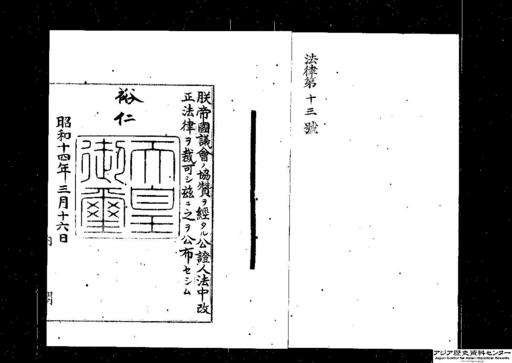 法律第十三號
朕帝國議會ノ協贊ヲ經タル公證人法中改
正法律ヲ裁可シ玆ニ之ヲ公布セシム
裕仁
天皇
御璽
昭和十四年三月十六日
内閣
アジア歴史資料センター
Japan Center for Asian Historical Records